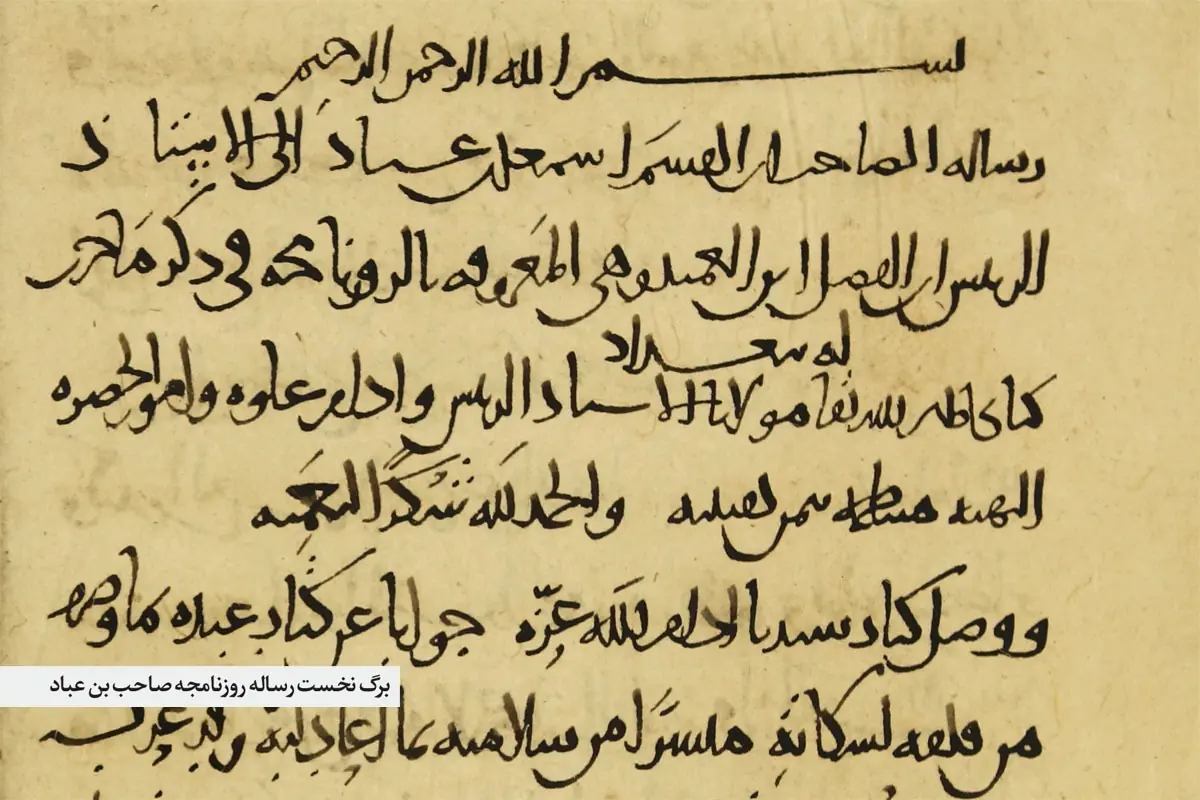 بسم الله الرحمن الرحيم
رساله الصاحب ابى القسم اسمعيل بن عباد الى الاستاذ
الرئيس ابى الفضل ابن العميد وهى المعروفه بالروزنامجه فى ذكر ما جرى
له ببغداد
كتابى اطال الله بقا مولانا الاستاد الرئيس وادام علوه وامور الحضره
البهيه منتظمه بيمن نقيبته والحمد لله شكرًا لنعمته
ووصل كتاب سيدنا ادام الله عزّه جوابا عن كتاب عبده
من سلامته بما
برگ نخست رساله روزنامجه صاحب بن عباد